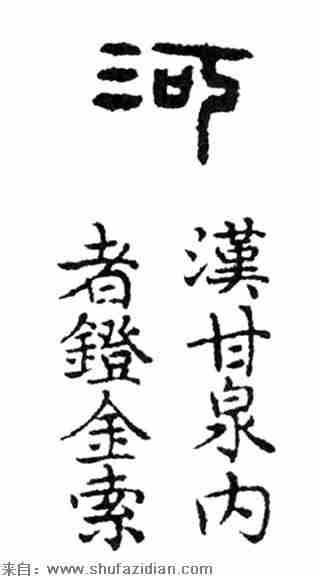 河
漢甘泉内
者鐙金索
来自：www.shufazidian.com